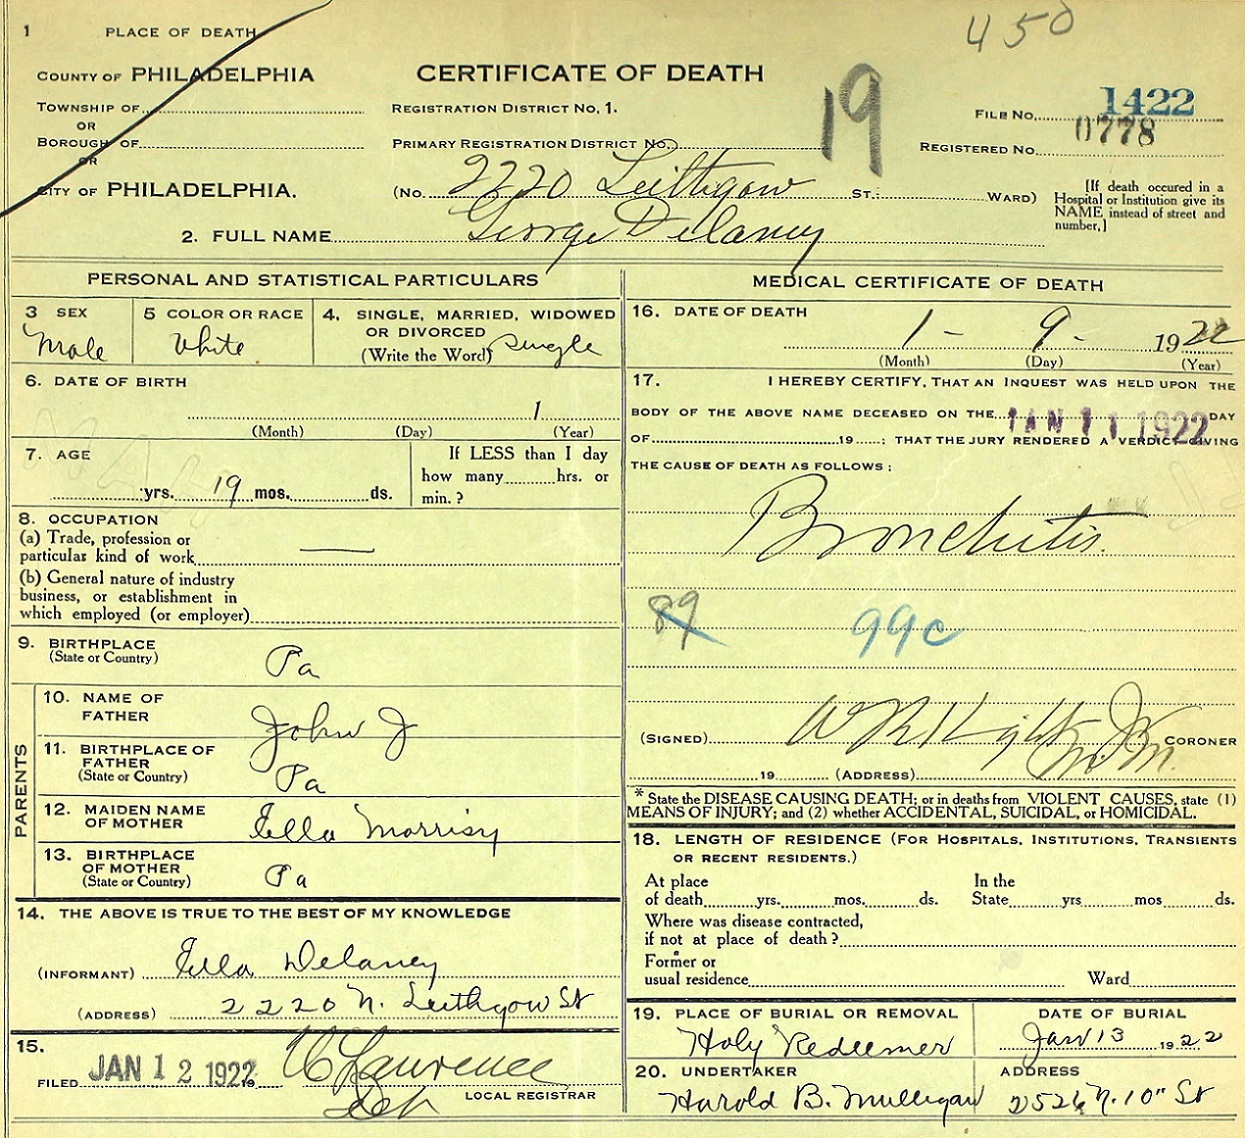 450
1 PLACE OF DEATH
COUNTY OF PHILADELPHIA
CERTIFICATE OF DEATH
TOWNSHIP OF
OR
BOROUGH OF
OR
CITY OF PHILADELPHIA.
REGISTRATION DISTRICT No. 1.
PRIMARY REGISTRATION DISTRICT No.
19
FILE No. 1422
REGISTERED No. 0778
(No. 2220 Leithgow ST.: WARD)
[If death occured in a
Hospital or Institution give its
NAME instead of street and
number.]
2. FULL NAME George Delaney
PERSONAL AND STATISTICAL PARTICULARS
3 SEX
Male
5 COLOR OR RACE
White
4. SINGLE, MARRIED, WIDOWED
OR DIVORCED
(Write the Word) Single
6. DATE OF BIRTH
1
(Month) (Day) (Year)
7. AGE
yrs. 19 mos. ds.
If LESS than 1 day
how many hrs. or
min.?
8. OCCUPATION
(a) Trade, profession or
particular kind of work
(b) General nature of industry
business, or establishment in
which employed (or employer)
9. BIRTHPLACE
(State or Country)
Pa
PARENTS
10. NAME OF
FATHER
John J
11. BIRTHPLACE OF
FATHER
(State or Country)
Pa
12. MAIDEN NAME
OF MOTHER
Ella Morrisy
13. BIRTHPLACE
OF MOTHER
(State or Country)
Pa
14. THE ABOVE IS TRUE TO THE BEST OF MY KNOWLEDGE
(INFORMANT) Ella Delaney
(ADDRESS) 2220 N. Leithgow St
15.
FILED JAN 12 1922 19 Lawrence
Dep LOCAL REGISTRAR
MEDICAL CERTIFICATE OF DEATH
16. DATE OF DEATH
1 - 9 - 1922
(Month) (Day) (Year)
17. I HEREBY CERTIFY, THAT AN INQUEST WAS HELD UPON THE
BODY OF THE ABOVE NAME DECEASED ON THE JAN 11 1922 DAY
OF 19 ; THAT THE JURY RENDERED A VERDICT GIVING
THE CAUSE OF DEATH AS FOLLOWS:
Bronchitis.
89 99c
(SIGNED) CORONER
19 (ADDRESS)
* State the DISEASE CAUSING DEATH; or in deaths from VIOLENT CAUSES, state (1)
MEANS OF INJURY; and (2) whether ACCIDENTAL, SUICIDAL, or HOMICIDAL.
18. LENGTH OF RESIDENCE (FOR HOSPITALS, INSTITUTIONS, TRANSIENTS
OR RECENT RESIDENTS.)
At place
of death yrs. mos. ds.
In the
State yrs mos ds.
Where was disease contracted,
if not at place of death?
Former or
usual residence Ward
19. PLACE OF BURIAL OR REMOVAL
Holy Redeemer
DATE OF BURIAL
Jan 13 1922
20. UNDERTAKER
Harold B. Mulligan
ADDRESS
2526 N. 10" St